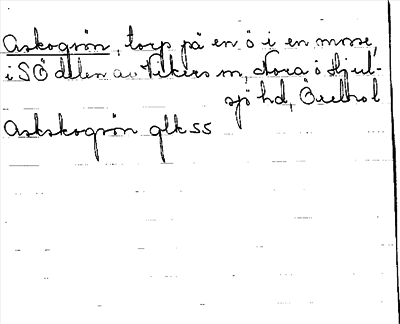 Askogrön, torp på en ö i en mosse,
i SÖ delen av Vikers sn, Nora o Hjul-
sjö hd, Örebro l
Askskogrön glk SS